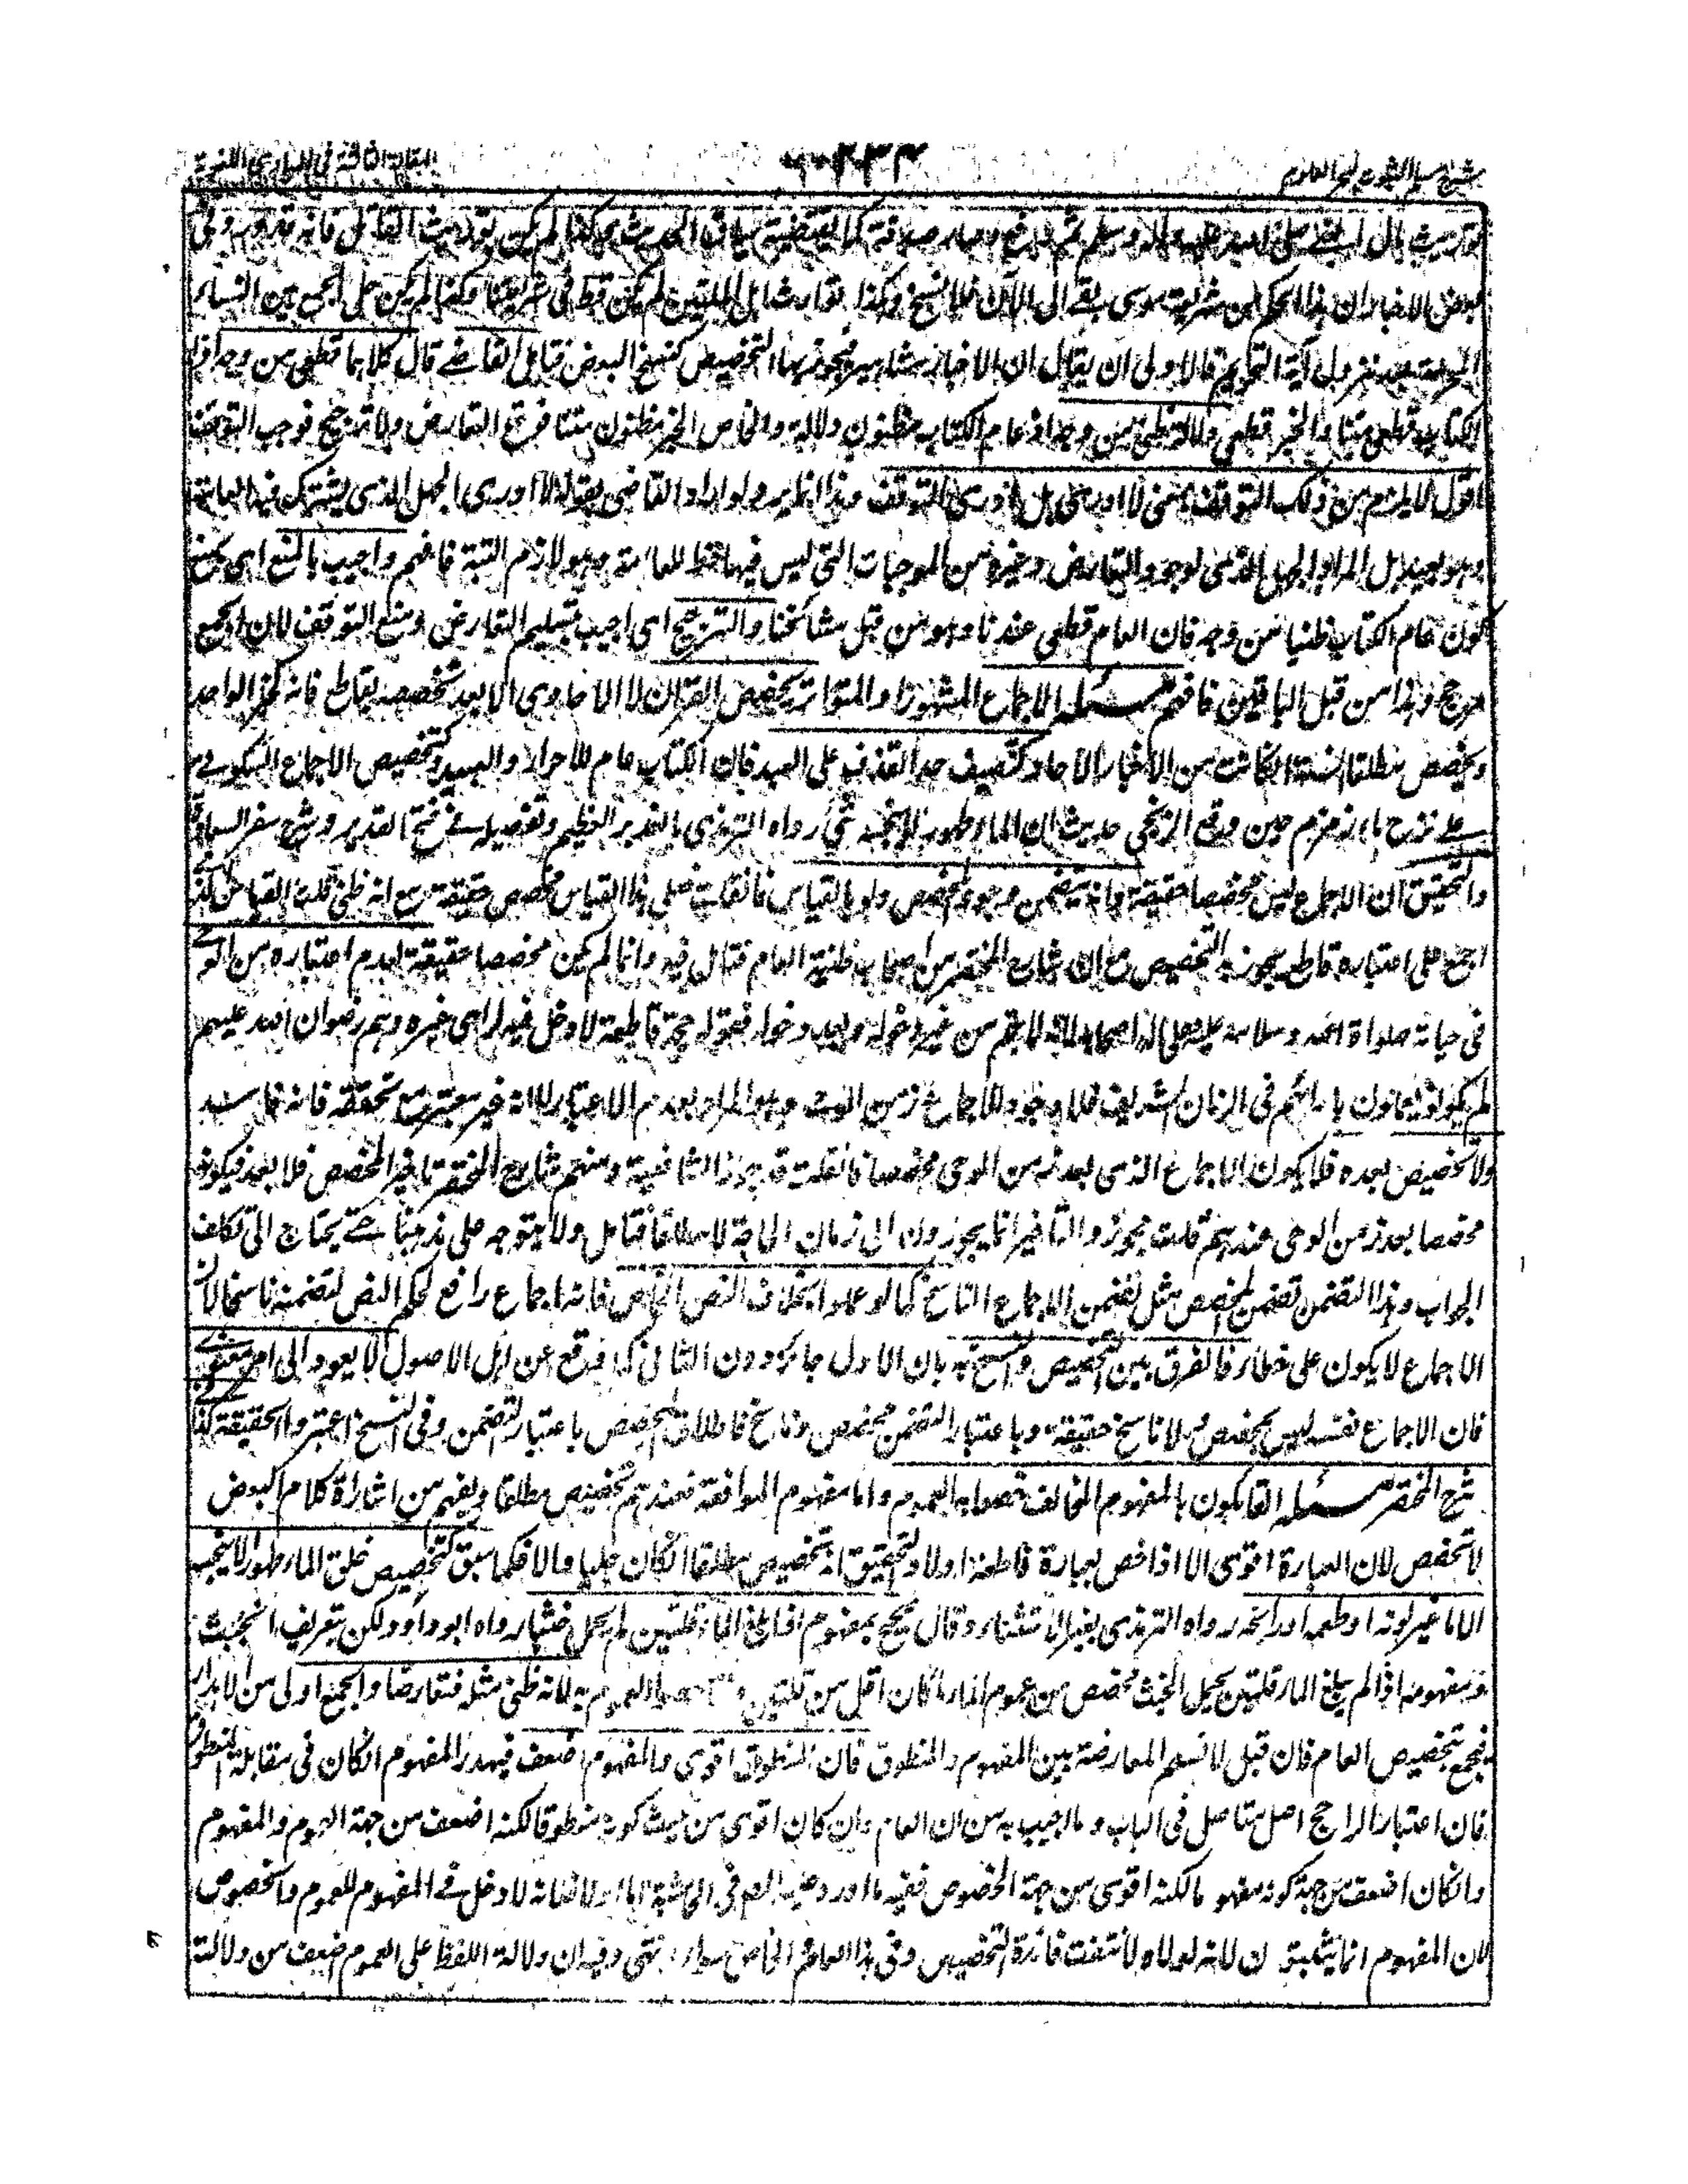 شرح مسلم الثبوت لبحر العلوم
٢٣٤
المقالة الثالثة في المبادي اللغوية
توريث مال النبي صلى الله عليه وآله وسلم ثم لما رفع صار صدقة كما يقتضيه سياق الحديث لم يكن توريث القاتل فانه قد روي في
بعض الاخبار ان هذا الحكم من شريعة موسى بقي الى الآن فلا نسخ وكذا توارث اهل الملتين لم يكن قط في شريعتنا وكذا لم يكن حل الجمع بين النساء
المحرمة بعد نزول آية التحريم فالاولى ان يقال ان الاخبار مشاهير فيجوز بها التخصيص كنسخ البعض فتامل القاضي قال كلاهما قطعي من وجه اذ
الكتاب قطعي متنا والخبر قطعي دلالة وظني من وجه اذ عام الكتاب مظنون دلالة والخاص الخبر مظنون متنا فوقع التعارض ولا ترجيح فوجب التوقف
اقول لا يلزم من ذلك التوقف بمعنى لا ادري بل ادري التوقف وهذا انما يرد لو اراد القاضي بقوله لا ادري الجهل الذي يشترك فيه العامة
وهو بعيد بل المراد الجهل الذي لوجود التعارض وغيره من الموجبات التي ليس فيها حظ للعامة وهو لازم البتة فافهم واجيب بالمنع اي بمنع
كون عام الكتاب ظنيا من وجه فان العام قطعي عندنا وهو من قبل مشائخنا والترجيح اي اجيب بتسليم التعارض ومنع التوقف لان الجمع
مرجح وهذا من قبل الباقين فافهم مسئلة الاجماع المشهور والمتواتر يخصص القرآن لا الاحادي الا بعد تخصيصه بقاطع فانه كخبر الواحد
ويخصص مطلقا السنة الكائنة من الاخبار الآحاد كتنصيف حد القذف على العبد فان الكتاب عام للاحرار والعبيد وتخصيص الاجماع السكوتي
على نزح ماء زمزم حين وقع الزنجي حديث ان الماء طهور لا ينجسه شئ رواه الترمذي بالغدير العظيم وتفصيله في فتح القدير وشرح سفر السعادة
والتحقيق ان الاجماع ليس مخصصا حقيقة وانه يتضمن وجود مخصص ولو بالقياس فان قلت فعلى هذا القياس مخصص حقيقة مع انه ظني قلت القياس الذي
اجمع على اعتباره قاطع يجوز به التخصيص مع ان شارح المختصر من اصحاب ظنية العام فتامل فيه وانما لم يكن مخصصا حقيقة لعدم اعتباره من الوحي
في حياته صلواة الله وسلامه عليه وعلى آله واصحابه لانه لا يتم من غير دخوله وبعد دخوله فقوله حجة قاطعة لا دخل فيه لراي غيره وهم رضوان الله عليهم
لم يكونوا يفتون بارائهم في الزمان الشريف فلا وجود للاجماع زمن الوحي وهو المراد بعدم الاعتبار لا انه غير معتبر مع تحققه فانه فاسد
ولا تخصيص بعده فلا يكون الاجماع الذي بعد زمن الوحي مخصصا فان قلت قد جوز الشافعية ومنهم شارح المختصر تاخير المخصص فلا بعد فيكون
مخصصا بعد زمن الوحي عندهم قلت مجوزو التأخير انما يجوزون الى زمان الحاجة لا مطلقا فتامل ولا يتوجه على مذهبنا حتى يحتاج الى تكلف
الجواب وهذا التضمن تضمن المخصص مثل تضمن الاجماع الناسخ كما لو عملوا بخلاف النص الخاص فانه اجماع رافع لحكم النص لتضمنه ناسخا لان
الاجماع لا يكون على خطاء فالفرق بين التخصيص والنسخ به بان الاول جائز دون الثاني كما وقع عن اهل الاصول لا يعود الى امر معنوي
فان الاجماع نفسه ليس بمخصص ولا ناسخ حقيقة وباعتبار التضمن مخصص وناسخ فاطلاق المخصص باعتبار التضمن وفي النسخ اعتبروا الحقيقة كذا في
شرح المختصر مسئلة القائلون بالمفهوم المخالف خصوا به العموم واما مفهوم الموافقة فعندهم تخصيص مطلقا ويفهم من اشارة كلام البعض
لا تخصص لان العبارة اقوى الا اذا خص بعبارة قاطعة اولا والتحقيق انه تخصيص مطلقا ان كان جليا والا فكما سبق كتخصيص خلق الماء طهورا لا ينجسه
الا ما غير لونه او طعمه او ريحه رواه الترمذي بغير الاستثناء وقال صحيح بمفهوم اذا بلغ الماء قلتين لم يحمل خبثا رواه ابو داود ولكن بتعريف الخبث
ومفهومه اذا لم يبلغ الماء قلتين يحمل الخبث مخصص من عموم الماء ما كان اقل من قلتين وانما خصوا العموم به لانه ظني مثله فتعارضا والجمع اولى من الاهدار
فيجمع بتخصيص العام فان قيل لا نسلم المعارضة بين المفهوم والمنطوق فان المنطوق اقوى والمفهوم اضعف فيهدر المفهوم الكان في مقابلة المنطوق
فان اعتبار الراجح اصل متاصل في الباب وما اجيب به من ان العام وان كان اقوى من حيث كونه منطوقا لكنه اضعف من جهة العموم والمفهوم
وان كان اضعف من جهة كونه مفهوما لكنه اقوى من جهة الخصوص ففيه ما اورد عليه المص في الحاشية اما اولا فلانه لا دخل في المفهوم للعموم والخصوص
لان المفهوم انما يثبتون لانه لولاه لانتفت فائدة التخصيص وفي هذا العام والخاص سواء انتهى وفيه ان دلالة اللفظ على العموم اضعف من دلالته